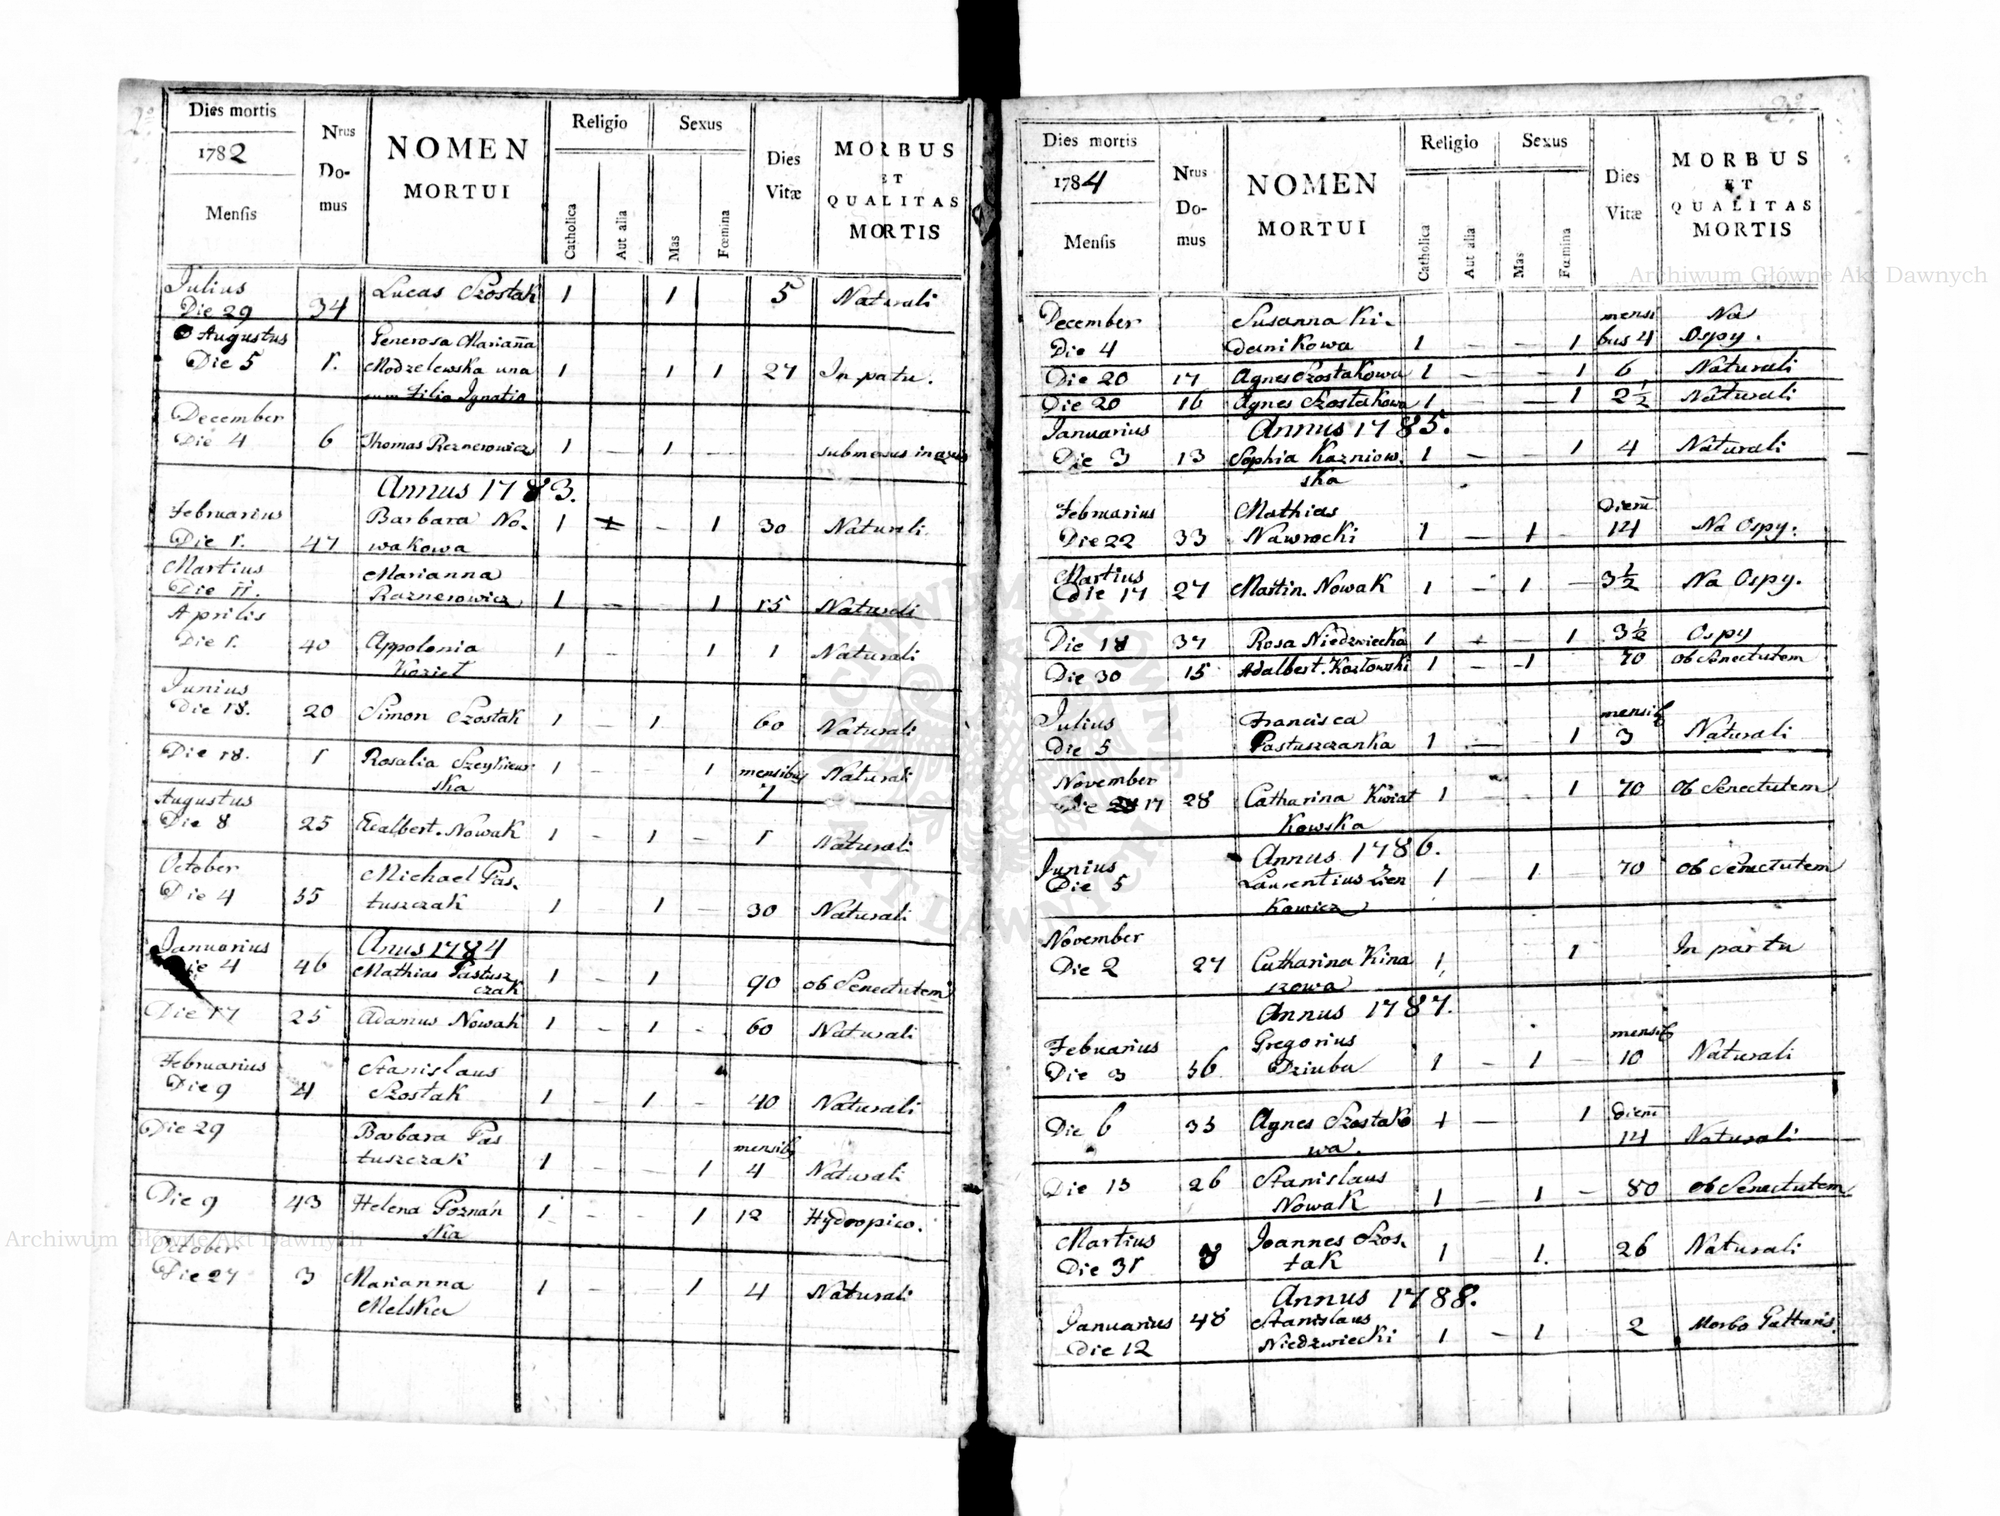 2º
Dies mortis
1782
Mensis
Nrus
Do-
mus
NOMEN
MORTUI
Religio
Catholica
Aut alia
Sexus
Mas
Fœmina
Dies
Vitæ
MORBUS
ET
QUALITAS
MORTIS
Julius
Die 29 34 Lucas Szostak 1 1 5 Naturali
Augustus Generosa Marianna
Die 5 1. Modzelewska una 1 1 1 27 In patu.
cum Filio Ignatio
December
Die 4 6 Thomas Reznerowicz 1 – 1 – submersus in
Annus 1783.
Februarius Barbara No-
Die 1. 47 wakowa 1 – 1 30 Naturali
Martius Marianna
Die 11. Raznerowicz 1 – 1 15 Naturali
Aprilis
Die 1. 40 Appolonia 1 – 1 1 Naturali
Koziet
Junius
Die 18. 20 Simon Szostak 1 – 1 60 Naturali
Die 18. 1 Rosalia 1 – – 1 mensibus Naturali
ska 7
Augustus
Die 8 25 Adalbert. Nowak 1 – 1 – 1 Naturali
October Michael Pas-
Die 4 35 tuszczak 1 – 1 – 30 Naturali
Januarius Anus 1784
Die 4 46 Mathias Pastusz 1 – 1 90 ob Senectutem
czak
Die 17 25 Adamus Nowak 1 – 1 – 60 Naturali
Februarius Stanislaus
Die 9 4 Szostak 1 – 1 – 40 Naturali
Die 29 Barbara Pas mensib
tuszczak 1 – – 1 4 Naturali
Die 9 43 Helena Poznań 1 – – 1 12 Hydropico.
ska
October
Die 27 3 Marianna 1 – – 1 4 Naturali
Melska
3º
Dies mortis
1784
Mensis
Nrus
Do-
mus
NOMEN
MORTUI
Religio
Catholica
Aut alia
Sexus
Mas
Fœmina
Dies
Vitæ
MORBUS
ET
QUALITAS
MORTIS
December Susanna Ki- mensi Na
Die 4 danikowa 1 – – 1 bus 4 Ospy.
Die 20 17 Agnes Szostakowa 1 – – 1 6 Naturali
Die 20 16 Agnes Szostakowa 1 – – 1 2½ Naturali
Januarius Annus 1785.
Die 3 13 Sophia Kazniow. 1 – – 1 4 Naturali
ska
Februarius Mathias Dierū
Die 22 33 Nawrocki 1 – 1 – 14 Na Ospy.
Martius
Die 17 27 Martin. Nowak 1 – 1 – 3½ Na Ospy.
Die 18 37 Rosa Niedzwiecka 1 – – 1 3½ Ospy
Die 30 15 Adalbert. Kozłowski 1 – 1 70 ob Senectutem
Julius Francisca mensib
Die 5 Pastuszczanka 1 – – 1 3 Naturali
November
Die 17 28 Catharina Kwiat 1 – – 1 70 ob Senectutem
kowska
Annus 1786.
Junius
Die 5 Laurentius Zien 1 – 1 – 70 ob Senectutem
kowicz
November
Die 2 27 Catharina Kina 1 1 In partu
szowa
Annus 1787.
Februarius Gregorius mensib
Die 3 36 Dziuba 1 – 1 – 10 Naturali
Die 6 35 Agnes Szostako 1 – 1 dierū
wa. 14 Naturali
Die 13 26 Stanislaus
Nowak 1 – 1 – 80 ob Senectutem
Martius Joannes Szos.
Die 31 8 tak 1 – 1. 26 Naturali
Annus 1788.
Januarius 48 Stanislaus
Die 12 Niedzwiecki 1 – 1 – 2 Morbo Gutturis.
Archiwum Główne Akt Dawnych
Archiwum Główne Akt Dawnych
ARCHIWUM GŁÓWNE AKT DAWNYCH